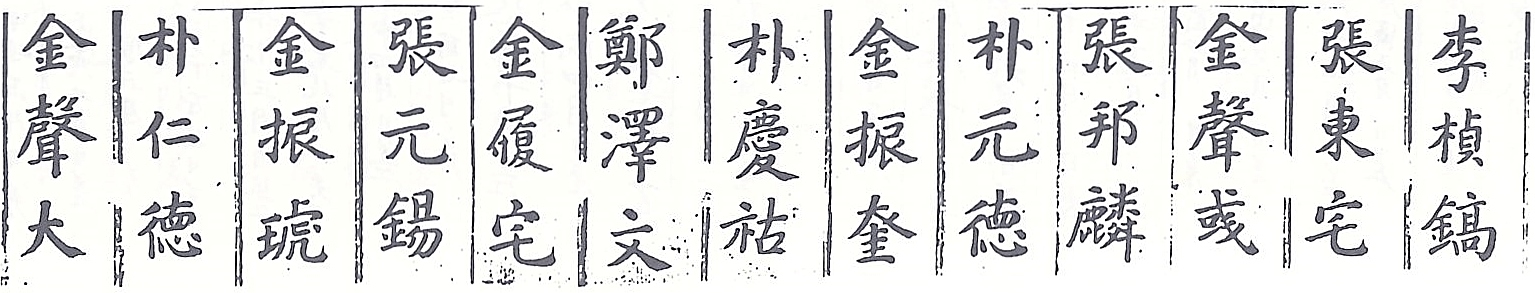 李楨鎬
張東宅
金聲彧
張邦麟
朴元德
金振奎
朴慶祜
鄭澤文
金履宅
張元錫
金振琥
朴仁德
金聲大